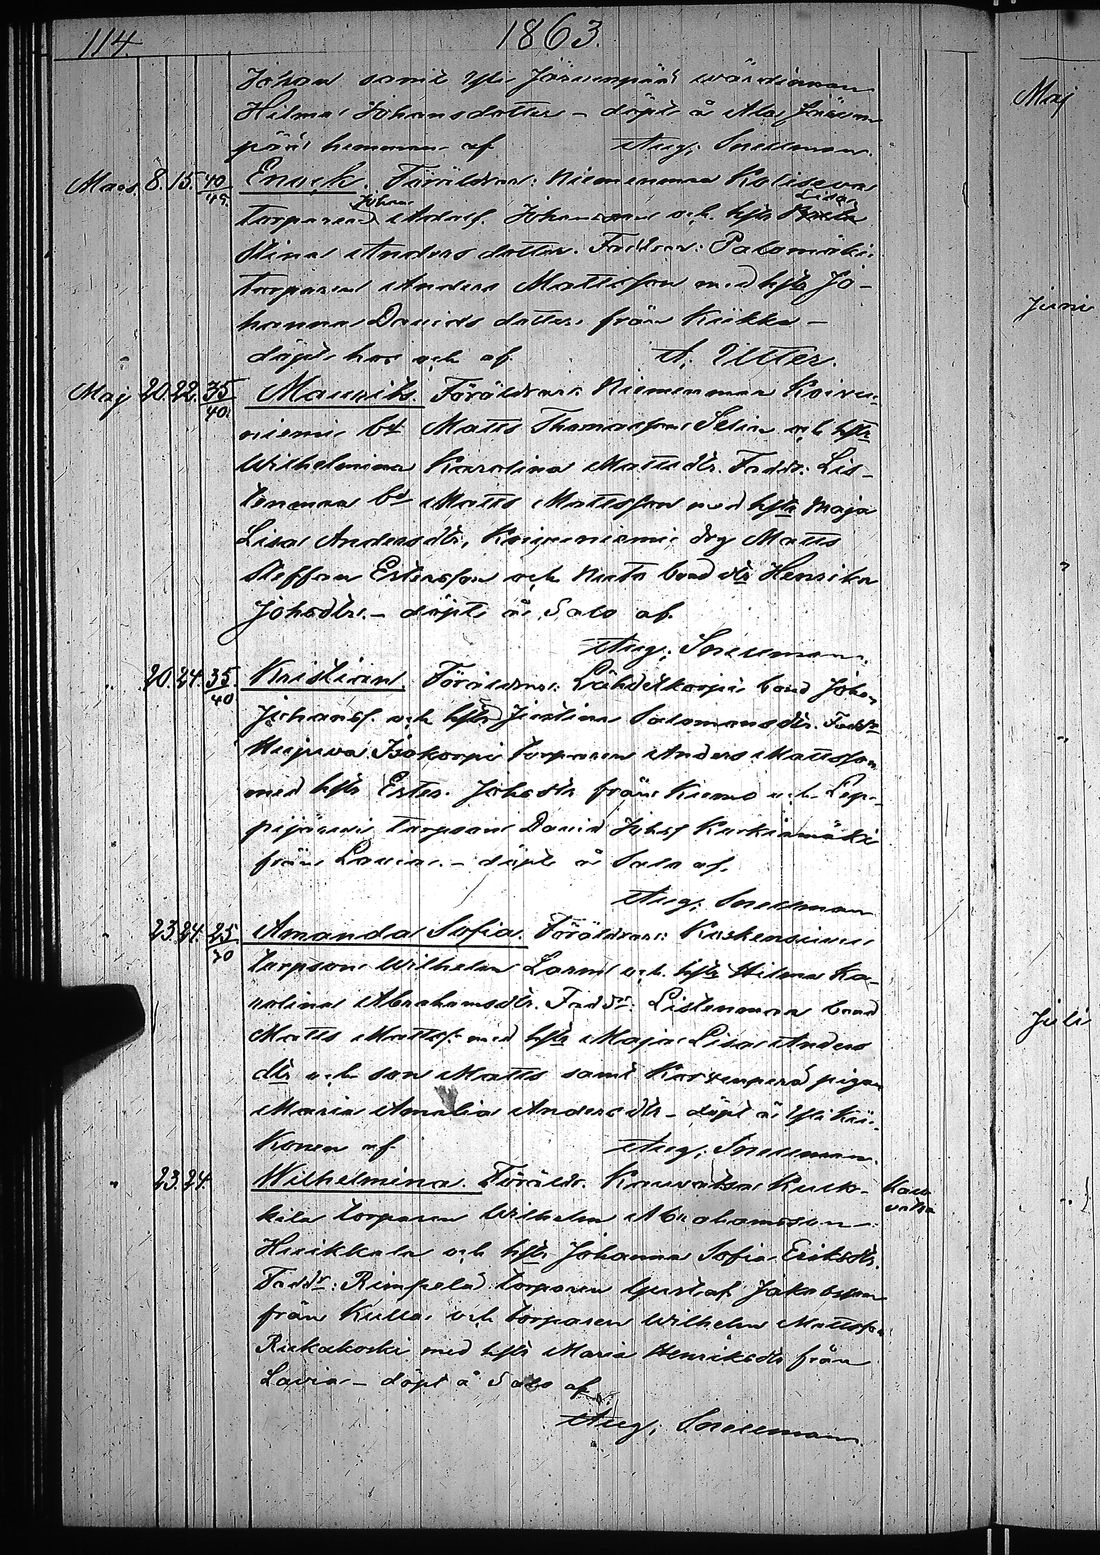 114. 1863.
Johan samt Yli Järvenpää wärdinnan
Hilma Johansdotter – döpt å Ala Järven
pää hemman af Aug. Snellman.
Mars 8. 15. 40/45. Enock. Föräldrar: Niemenmaa Koliseva
torparen Johan Adolf Johansson och hstr Lisa
Stina Anders dotter. Faddrar: Palomäki
torparen Anders Mattsson med hstr Jo-
hanna Davids dotter från Kiikka –
döpt hos och af A. Utter.
Maj 20. 22. 35/40. Maurits. Föräldrar: Niemenmaa Koivu-
niemi bd Matts Thomasson Selin och hstr
Wilhelmina Karolina Mattsdtr. Faddr: Lis-
tenmaa bd Matts Mattsson med hstr Maja
Lisa Andersdtr, Koivuniemi drg Matts
Steffan Estersson och bond dtr Henrika
Johsdtr. – döpt å Salo af
Aug. Snellman.
" 20. 24. 35/40 Kristian. Föräldrar: Lähdekorpi bond Johan
Johansf. och hstr Justina Salomonsdtr. Faddr
Isokorpi torparen Anders Mattsson
med hstr Ester Johsdtr från Kiimo och Lep-
pijärvi torpson David Johsf Kurkiamäki
från Lavia. – döpt å Salo af.
Aug. Snellman
" 23. 24. 25/30 Amanda Sofia. Föräldrar: Koskensivu
torpson Wilhelm Larm och hstr Hilma Ka-
rolina Abrahamsdtr. Faddr: Listenmaa bond
Matts Mattsf. med hstr Maja Lisa Anders
dtr och son Matts samt Korvenperä pigan
Maria Amalia Andersdtr – döpt å Yli Kii-
konen af Aug. Snellman.
" 23. 24. Wilhelmina. Föräldr. Kauvatsa Kuck- Kau-
kila torparen Wilhelm Abrahamsson vatsa
Huikkala och hstr Johanna Sofia Eriksdtr.
Faddr: Rimpelä torparen Gustaf Jakobsson
från Kulla, och torparen Wilhelm Mattsson
Riukakoski med hstr Maria Henriksdtr från
Lavia – döpt å Salo af
Aug. Snellman.
Maj
Juni
"
"
Juli
"